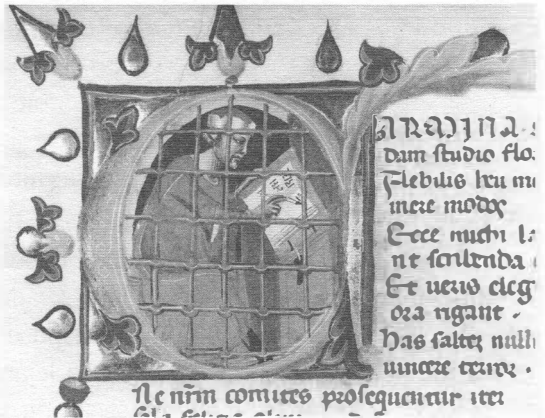 CARMINA
dam studio flo
Flebilis heu me
inire modos
Ecce michi la
nt scribenda
Et ueris eleg
ora rigant .
Has saltez null
uincere terror .
Ne nrm comites prosequentur iter